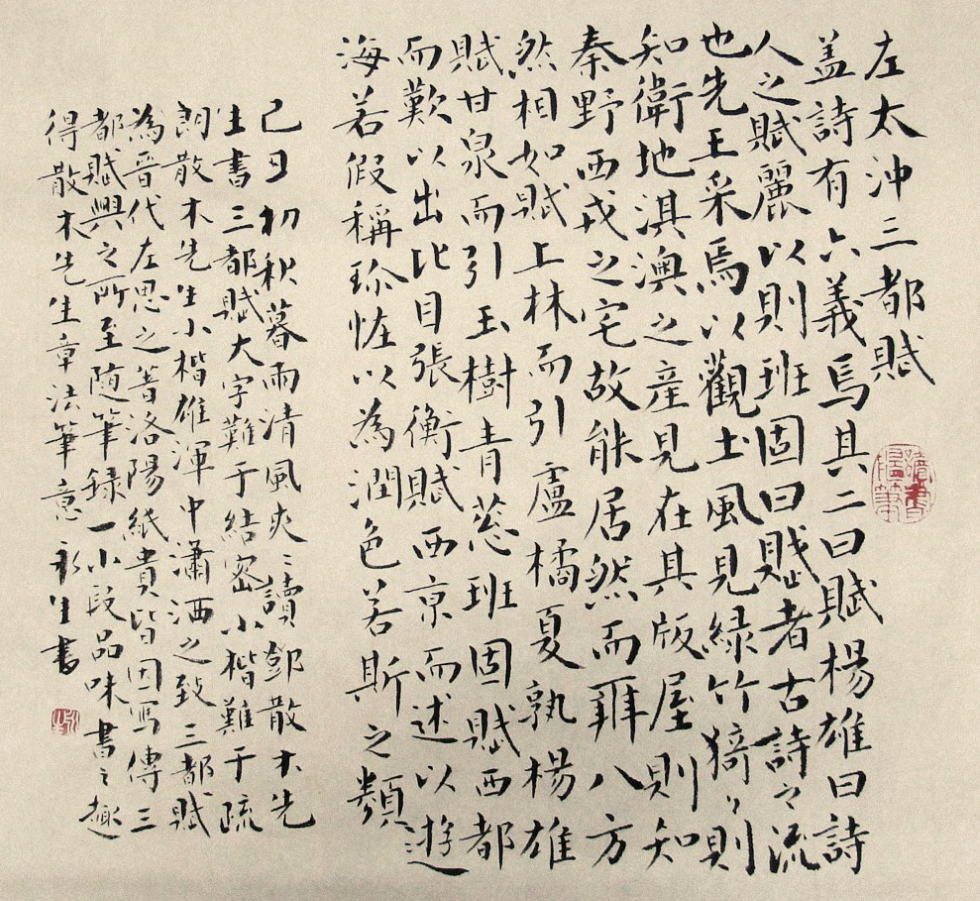 左太沖三都賦
盖詩有六義焉其二曰賦楊雄曰詩
人之賦麗以則班固曰賦者古詩之流
也先王采焉以觀土風見緑竹猗〻則
知衛地淇澳之産見在其版屋則知
秦野西戎之宅故能居然而辨八方
然相如賦上林而引盧橘夏孰楊雄
賦甘泉而引玉樹青葱班固賦西都
而歎以出比目張衡賦西京而述以遊
海若假稱珎恠以為潤色若斯之類
己丑初秋暮雨清風爽〻讀鄧散木先
生書三都賦大字難于結密小楷難于疏
朗散木先生小楷雄渾中瀟洒之致三都賦
為晋代左思之著洛陽紙貴皆因写傳三
都賦興之所至随筆録一小段品味書之趣
得散木先生章法筆意永生書